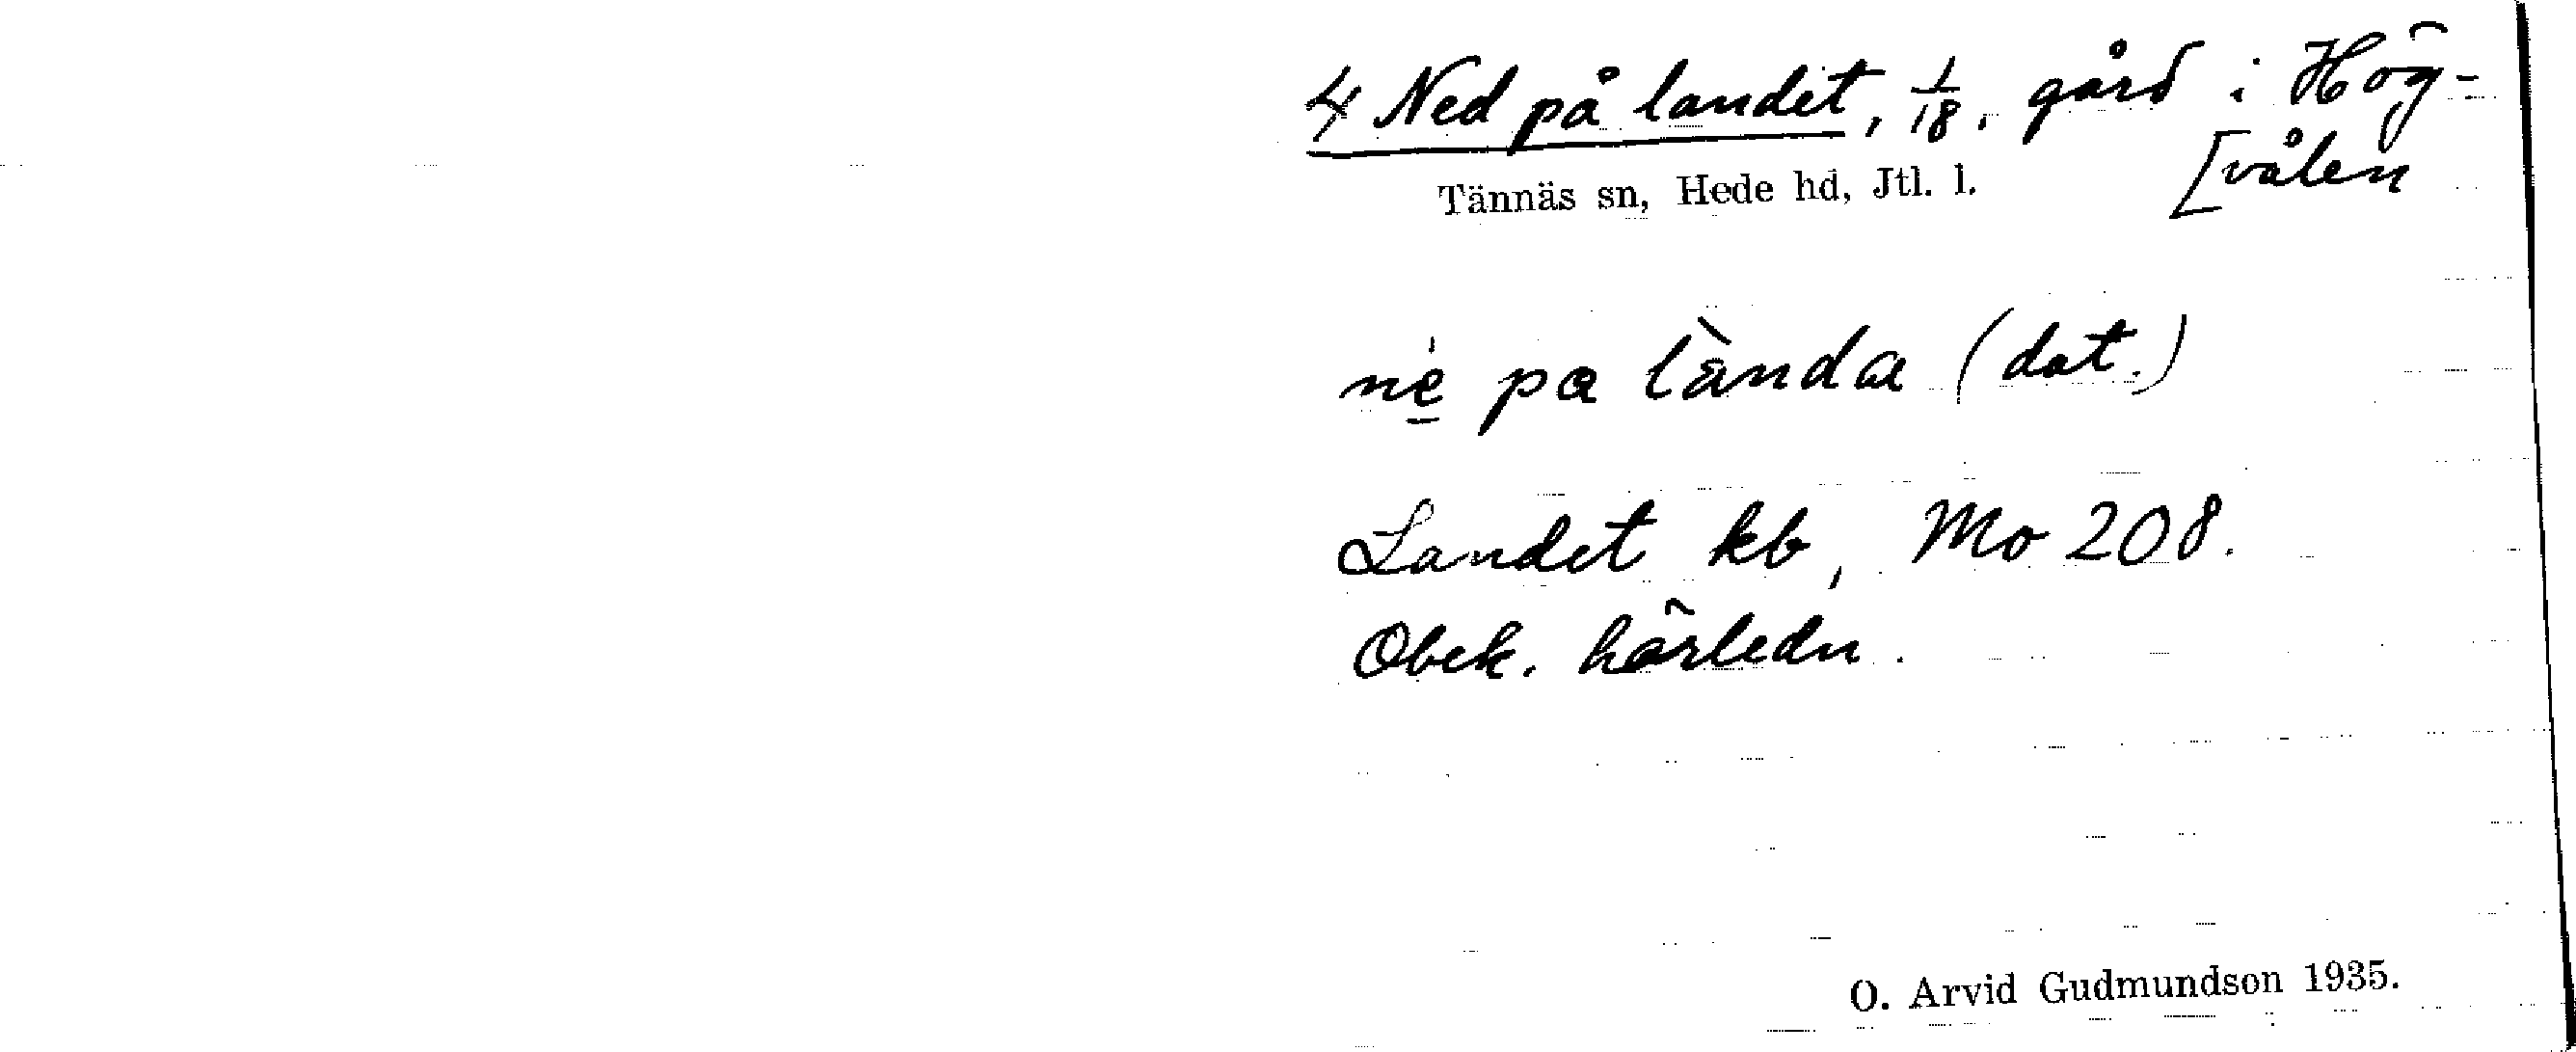 4 Ned på landet, 1/18, gård i Hög-
[vålen
Tännäs sn, Hede hd, Jtl. l.
nè̱ pa lànda (dat.)
Landet kb, Mo 208.
Obek. härledn.
O. Arvid Gudmundson 1935.